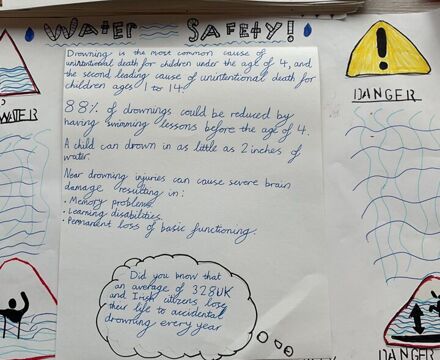 WATER SAFETY!
Drowning is the most common cause of
unintentional death for children under the age of 4, and
the second leading cause of unintentional death for
children ages 1 to 14.
88% of drownings could be reduced by
having swimming lessons before the age of 4.
A child can drown in as little as 2 inches of
water.
Near drowning injuries can cause severe brain
damage resulting in:
• Memory problems
• Learning disabilities
• Permanent loss of basic functioning.
Did you know that
an average of 328 UK
and Irish citizens lose
their life to accidental
drowning every year
WATER
DANGER
DANGER